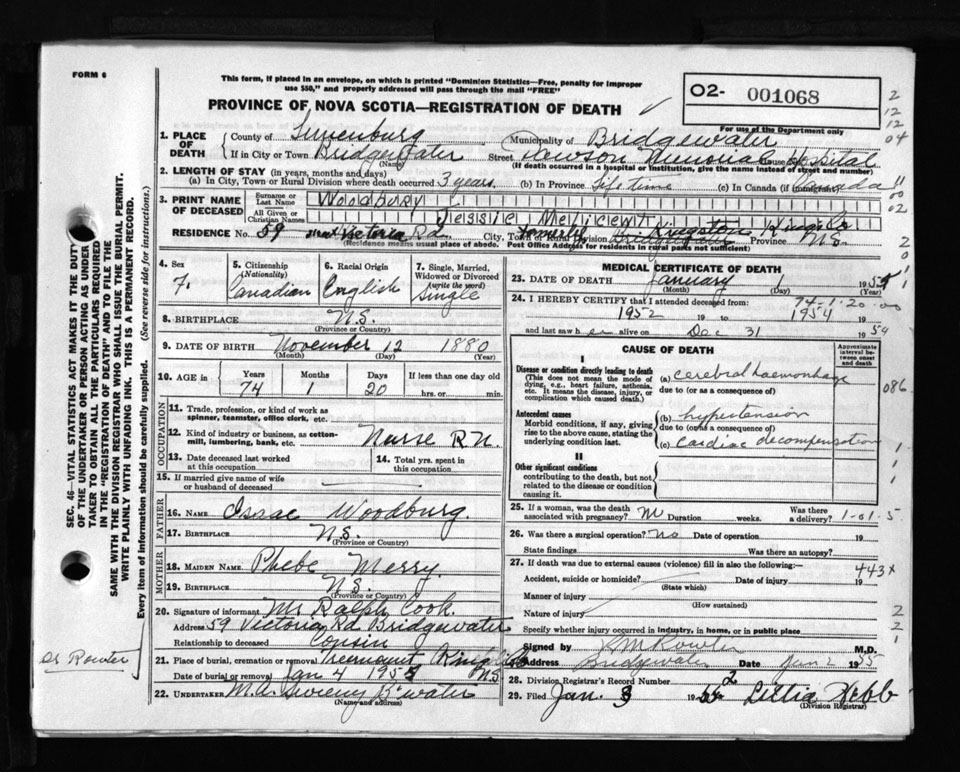 FORM 6
This form, if placed in an envelope, on which is printed "Dominion Statistics—Free, penalty for improper
use $50," and properly addressed will pass through the mail "FREE"
PROVINCE OF NOVA SCOTIA—REGISTRATION OF DEATH
O2- 001068
For use of the Department only
2
12
12
04
11
00
02
SEC. 46—VITAL STATISTICS ACT MAKES IT THE DUTY
OF THE UNDERTAKER OR PERSON ACTING AS UNDER-
TAKER TO OBTAIN ALL THE PARTICULARS REQUIRED
IN THE "REGISTRATION OF DEATH" AND TO FILE THE
SAME WITH THE DIVISION REGISTRAR WHO SHALL ISSUE THE BURIAL PERMIT.
WRITE PLAINLY WITH UNFADING INK. THIS IS A PERMANENT RECORD.
Every item of information should be carefully supplied. (See reverse side for instructions.)
1. PLACE OF DEATH County of Lunenburg Municipality of Bridgewater
If in City or Town Bridgewater Street Dawson Memorial House Hospital
(Name) (If death occurred in a hospital or institution, give the name instead of street and number)
2. LENGTH OF STAY (in years, months and days)
(a) In City, Town or Rural Division where death occurred 3 years. (b) In Province Life time (c) In Canada (if immigrant) Canada
3. PRINT NAME OF DECEASED Surname or Last Name Woodbury
All Given or Christian Names Jessie Melicent
RESIDENCE No. 59 Street Victoria Rd. City, Town or Rural Division Bridgewater Kingston Kings Co Province N.S.
(Residence means usual place of abode. Post Office Address for residents in rural parts not sufficient)
4. Sex F.
5. Citizenship (Nationality) Canadian
6. Racial Origin English
7. Single, Married, Widowed or Divorced (write the word) Single
8. BIRTHPLACE N.S.
(Province or Country)
9. DATE OF BIRTH November 12 1880
(Month) (Day) (Year)
10. AGE in Years 74 Months 1 Days 20 If less than one day old hrs. or min.
OCCUPATION
11. Trade, profession, or kind of work as spinner, teamster, office clerk, etc.
12. Kind of industry or business, as cotton-mill, lumbering, bank, etc. Nurse R.N.
13. Date deceased last worked at this occupation
14. Total yrs. spent in this occupation
15. If married give name of wife or husband of deceased
FATHER
16. NAME Isaac Woodbury.
17. BIRTHPLACE N.S.
(Province or Country)
MOTHER
18. MAIDEN NAME Phebe Merry.
19. BIRTHPLACE N.S.
(Province or Country)
20. Signature of informant Mr Ralph Cook.
Address 59 Victoria Rd. Bridgewater
Relationship to deceased Cousin
Dr Rowter
21. Place of burial, cremation or removal Tremount Kings Co
Date of burial or removal Jan 4 1955 NS
22. UNDERTAKER M.A. Sweeny B'water
(Name and address)
MEDICAL CERTIFICATE OF DEATH
23. DATE OF DEATH January 1 1955
(Month) (Day) (Year)
24. I HEREBY CERTIFY that I attended deceased from: 74-1-20
1952 19 to 1954 19
and last saw her alive on Dec 31 1954
CAUSE OF DEATH
Approximate interval between onset and death
I
Disease or condition directly leading to death (a) cerebral haemorrhage 086
(This does not mean the mode of dying, e.g., heart failure, asthenia, etc. It means the disease, injury, or complication which caused death.)
due to (or as a consequence of)
Antecedent causes (b) hypertension
Morbid conditions, if any, giving rise to the above cause, stating the underlying condition last.
due to (or as a consequence of)
(c) cardiac decompensation
II
Other significant conditions contributing to the death, but not related to the disease or condition causing it.
25. If a woman, was the death associated with pregnancy? No Duration weeks. Was there a delivery? 1-01-5
26. Was there a surgical operation? No Date of operation 19
State findings Was there an autopsy?
27. If death was due to external causes (violence) fill in also the following:— 443x
Accident, suicide or homicide? Date of injury 19
(State which)
Manner of injury
(How sustained)
Nature of injury
Specify whether injury occurred in industry, in home, or in public place
Signed by M.D.
Address Bridgewater Date Jan 2 1955
28. Division Registrar's Record Number 2
29. Filed Jan. 3 19 Lillia Webb
(Division Registrar)